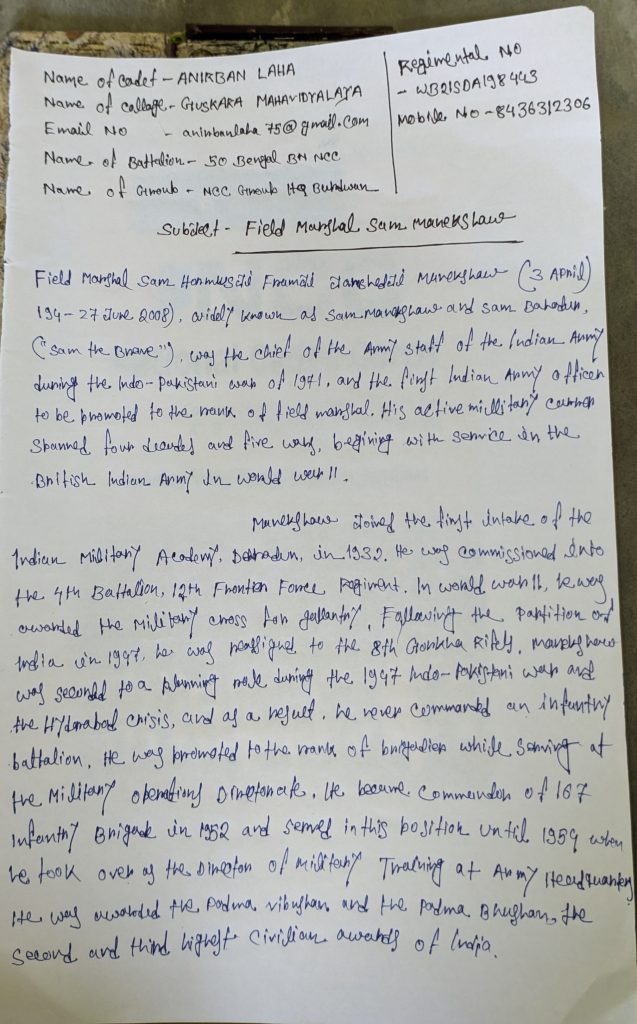 Name of Cadet - ANIRBAN LAHA
Name of callage - GUSKARA MAHAVIDYALAYA
Email No - anirbanlaha75@gmail.com
Name of Battalion - 50 Bengal BN NCC
Name of Group - NCC Group Hq Burdwan
Regimental No
- WB21SDA198443
Mobile No - 8436312306
Subject - Field Marshal Sam Manekshaw
Field Marshal Sam Hormusji Framji Jamshedji Manekshaw (3 April)
194 - 27 June 2008), widely known as Sam Manekshaw and Sam Bahadur,
("Sam the Brave"), was the chief of the Army staff of the Indian Army
during the Indo-Pakistani war of 1971, and the first Indian Army officer
to be promoted to the rank of field marshal. His active millitary career
Spanned four decades and five wars, begining with service in the
British Indian Army in world war II.
Manekshaw Joined the first intake of the
Indian Military Academy, Dehradun, in 1932. He was commissioned into
the 4th Battalion, 12th Frontier Force Regiment. In world war II, he was
awarded the Military cross for gallantry. Following the Partition of
India in 1947, he was reassigned to the 8th Gorkha Rifles. Manekshaw
was seconded to a planning role during the 1947 Indo-Pakistani war and
the Hyderabad crisis, and as a result, he never commanded an infantry
battalion. He was promoted to the rank of brigadier while Serving at
the Military operations Directorate. He became Commander of 167
Infantry Brigade in 1952 and served in this position until 1954 when
he took over as the Director of military Training at Army Headquarters
He was awarded the Padma vibushan and the Padma Bhushan, the
Second and third highest Civilian awards of India.